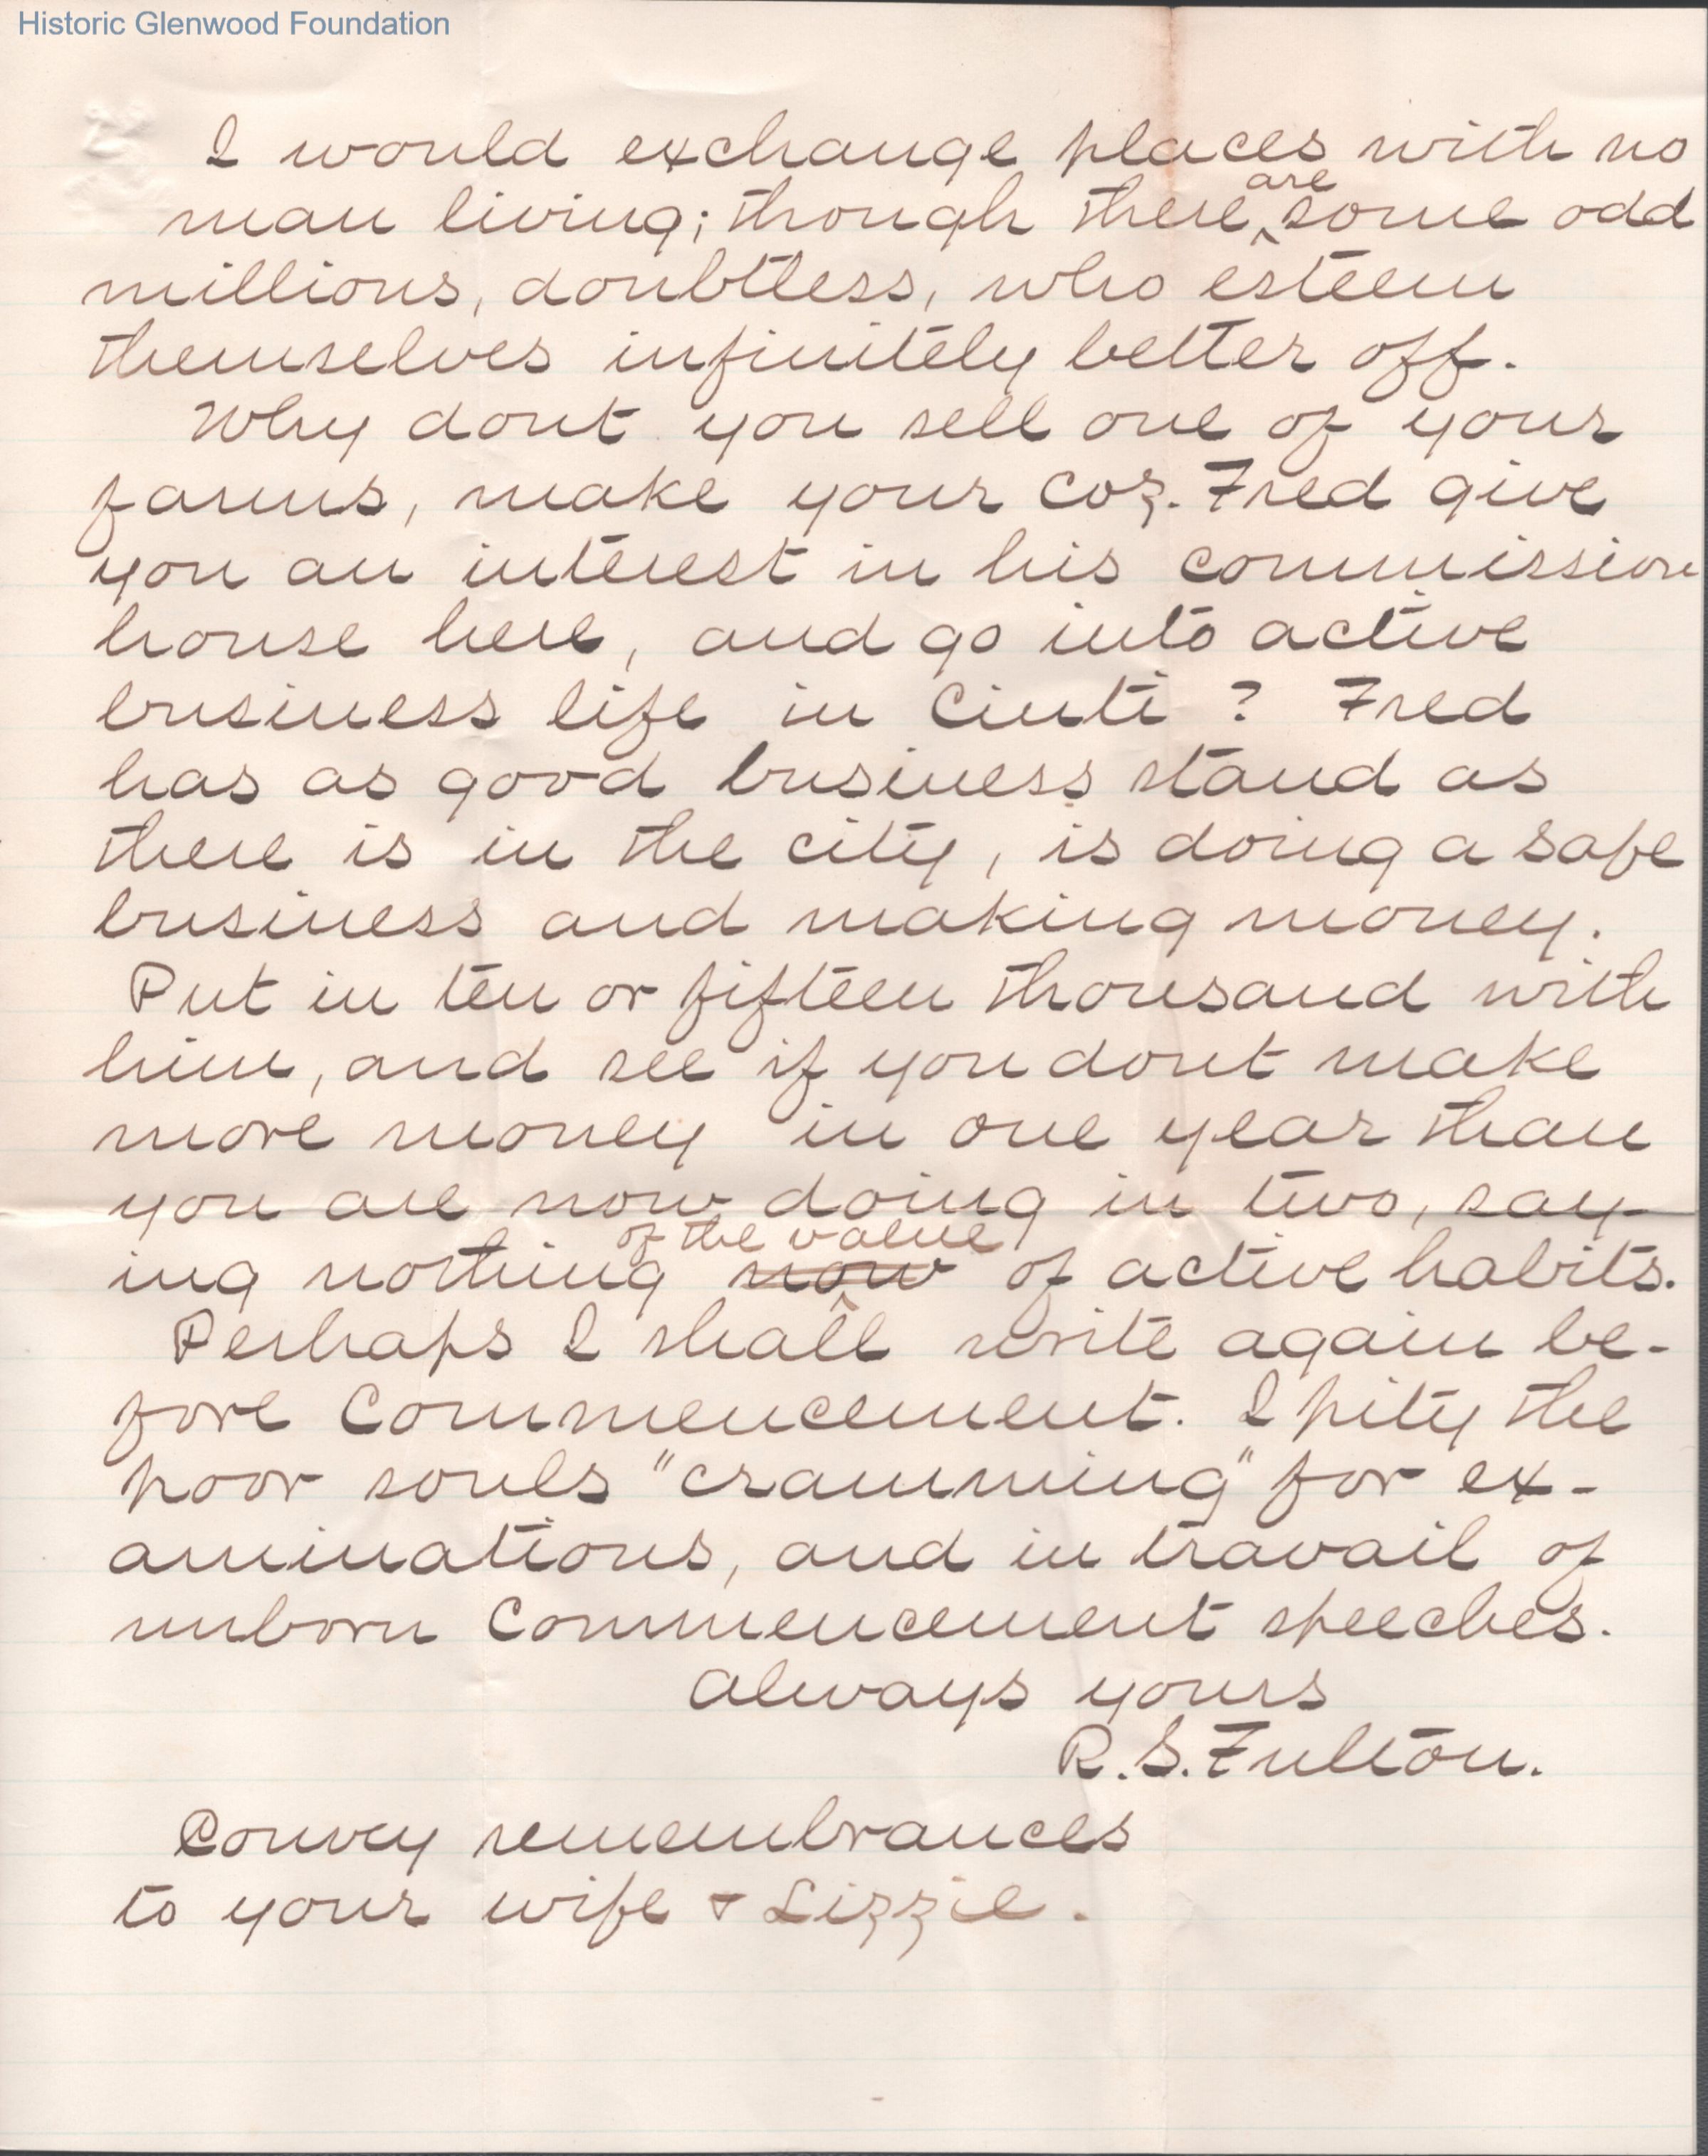 Historic Glenwood Foundation
I would exchange places with no
man living; though there are some odd
millions, doubtless, who esteem
themselves infinitely better off.
Why dont you sell one of your
farms, make your coz. Fred give
you an interest in his commission
house here, and go into active
business life in Cinti ? Fred
has as good business stand as
there is in the city, is doing a safe
business and making money.
Put in ten or fifteen thousand with
him, and see if you dont make
more money in one year than
you are now doing in two, say-
of the value
ing nothing now of active habits.
Perhaps I shall write again be-
fore Commencement. I pity the
poor souls "cramming" for ex-
aminations, and in travail of
unborn Commencement speeches.
Always yours
R. S. Fulton.
Convey remembrances
to your wife & Lizzie.